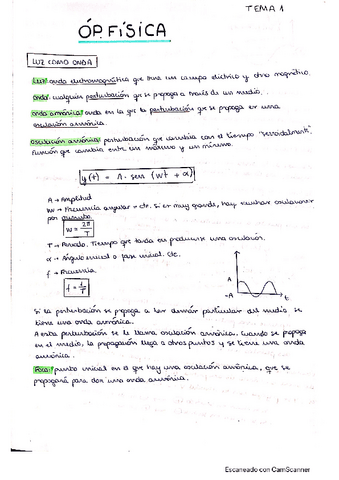 TEMA 1
ÓP. FÍSICA
LUZ COMO ONDA
Luz: onda electromagnética que tiene un campo eléctrico y otro magnético.
Onda: cualquier perturbación que se propaga a través de un medio.
Onda armónica: onda en la que la perturbación que se propaga es una
oscilación armónica.
Oscilación armónica: perturbación que cambia con el tiempo "senoidalmente",
función que cambia entre un máximo y un mínimo.
y(t) = A · sen (wt + α)
A → Amplitud
w → Frecuencia angular → cte. Si es muy grande, hay muchas oscilaciones
por segundo.
w = 2π/T
T → Periodo. Tiempo que tarda en producirse una oscilación.
α → Ángulo inicial o fase inicial. Cte.
f → Frecuencia
f = 1/T
A
-A
t
Si la perturbación se propaga a las demás partículas del medio, se
tiene una onda armónica.
A esta perturbación se le llama oscilación armónica. Cuando se propaga
en el medio, la propagación llega a otros puntos y se tiene una onda
armónica.
Foco: punto inicial en el que hay una oscilación armónica, que se
propagará para dar una onda armónica.
Escaneado con CamScanner